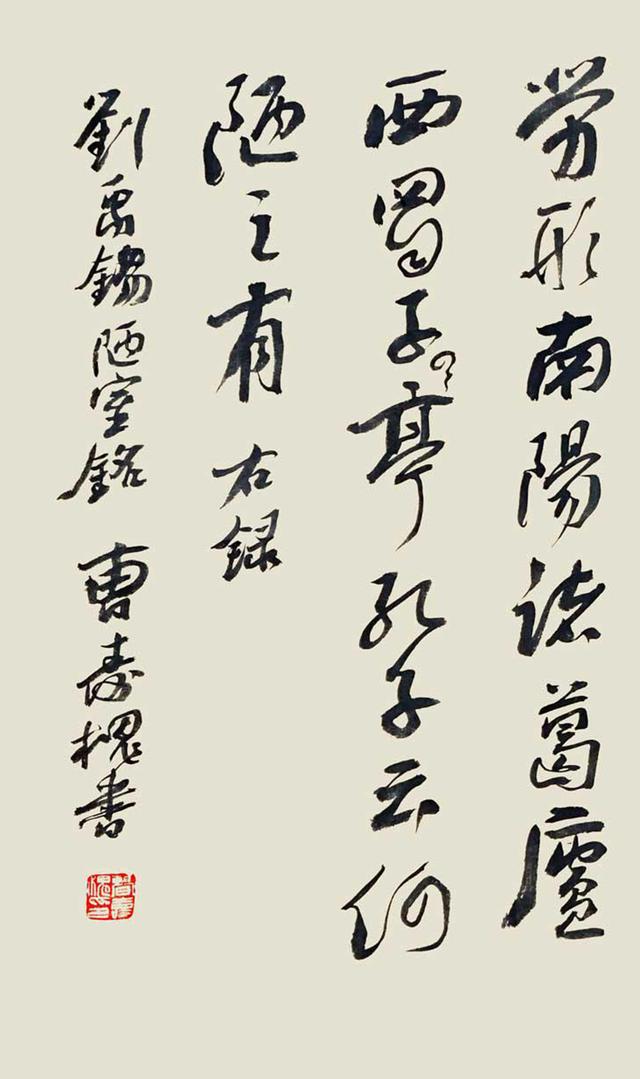 勞形南陽諸葛廬
西蜀子云亭孔子云何
陋之有 右録
劉禹錫陋室銘 曹壽槐書